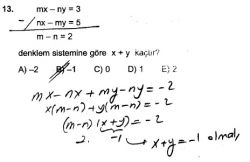 13. mx – ny = 3
– nx – my = 5
m – n = 2
denklem sistemine göre x + y kaçtır?
A) –2 B) –1 C) 0 D) 1 E) 2
mx - nx + my - ny = -2
x(m-n) + y(m-n) = -2
(m-n) (x+y) = -2
2. -1 → x+y = -1 olmalı,